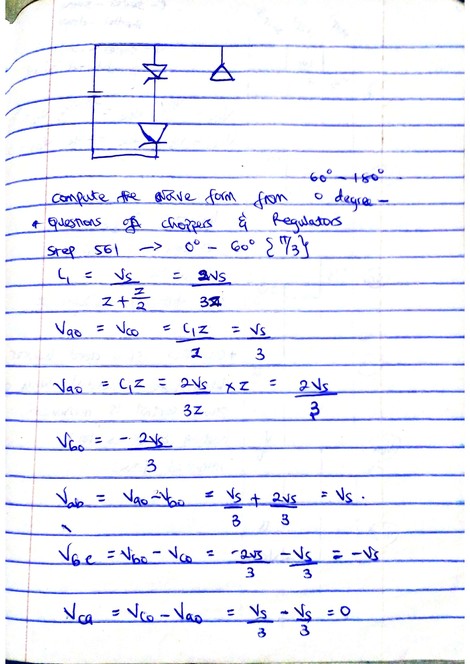 60° - 180°
compute the wave form from 0 degree -
* questions of choppers & Regulators
Step 561 → 0° - 60° {π/3}
i₁ = Vs / (Z + Z/2) = 2Vs / 3Z
Vao = Vco = i₁Z / 2 = Vs / 3
Vao = i₁Z = 2Vs / 3Z × Z = 2Vs / 3
Vbo = - 2Vs / 3
Vab = Vao - Vbo = Vs/3 + 2Vs/3 = Vs .
Vbc = Vbo - Vco = -2Vs/3 - Vs/3 = -Vs
Vca = Vco - Vao = Vs/3 - Vs/3 = 0